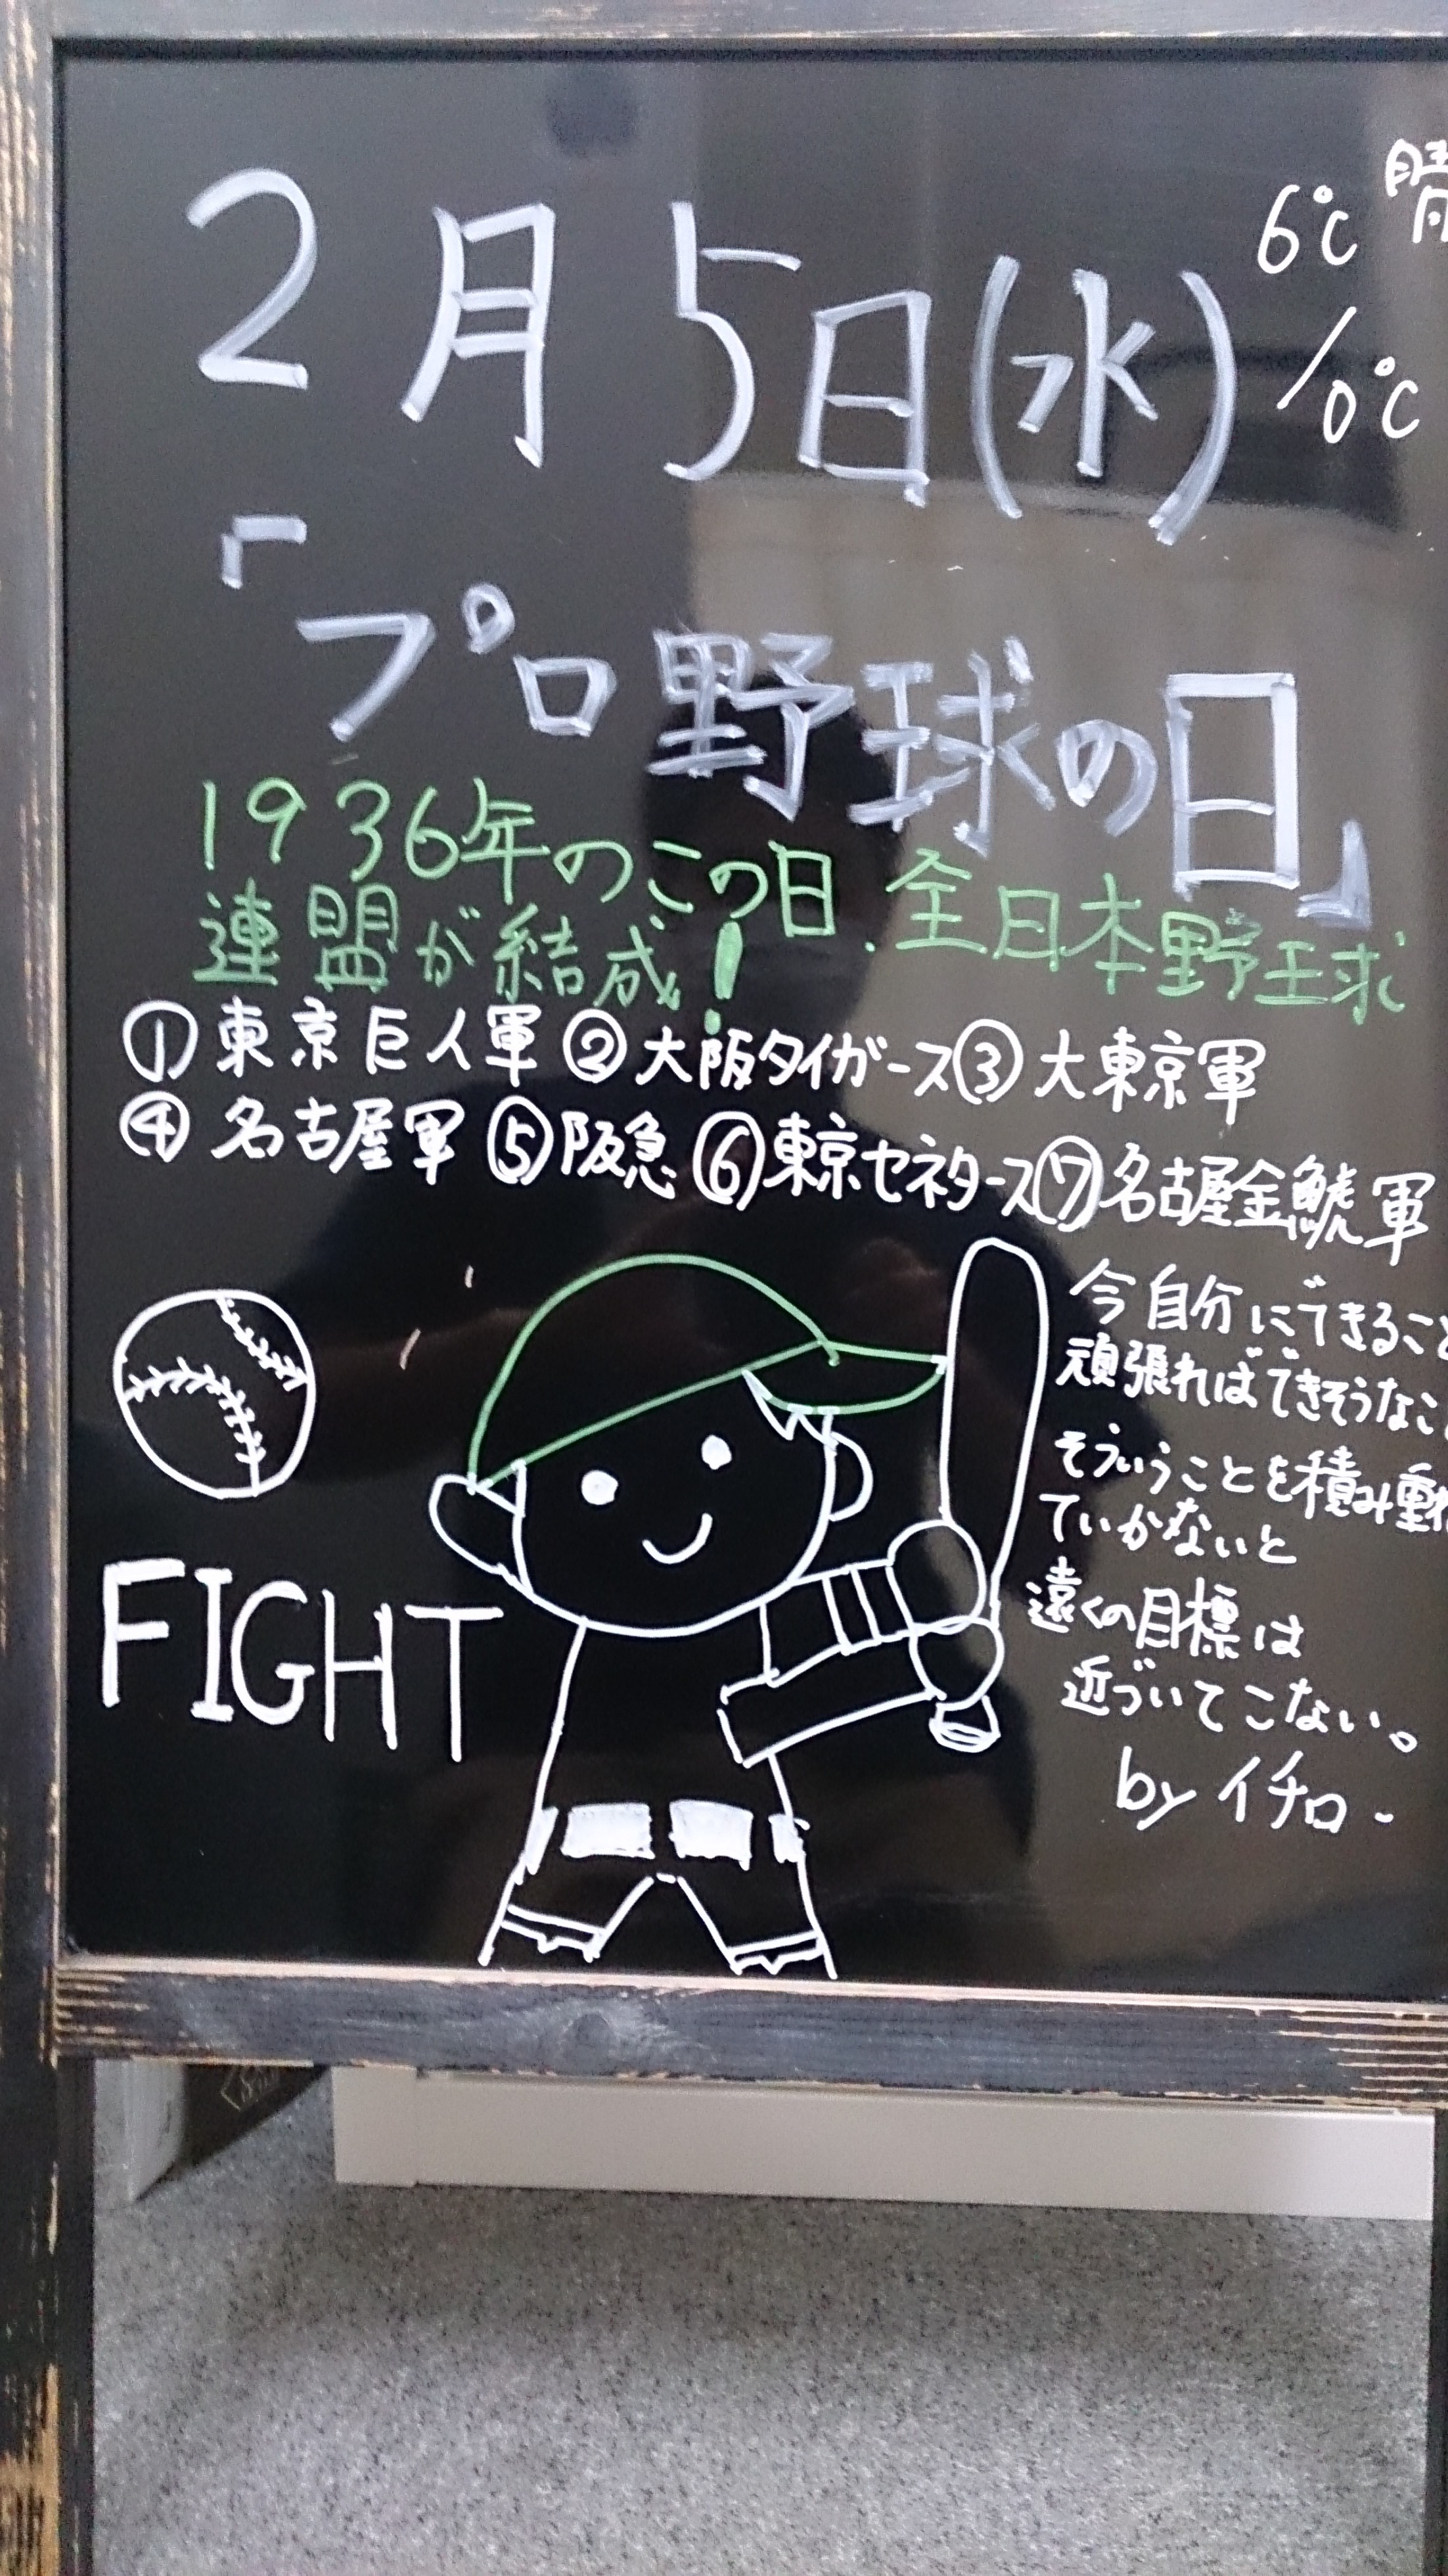 2月5日(水)
6℃ 晴
/0℃
「プロ野球の日」
1936年のこの日、全日本野球
連盟が結成!
①東京巨人軍②大阪タイガース③大東京軍
④名古屋軍⑤阪急⑥東京セネタース⑦名古屋金鯱軍
今自分にできること
頑張ればできそうなこ
そういうことを積み重ね
ていかないと
遠くの目標は
近づいてこない。
by イチロー
FIGHT